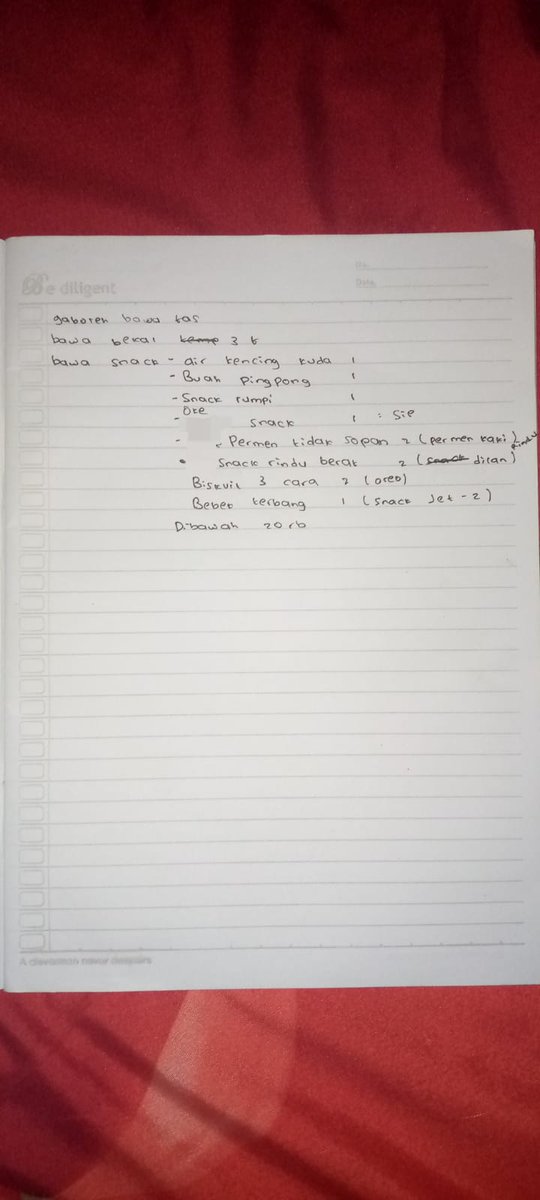 Be diligent
No.
Date.
gaboren bawa tas
bawa bekal 3 k
bawa snack - air kencing kuda 1
- Buah Pingpong 1
- Snack rumpi 1
Oke
- snack 1 : Sip
- Permen tidak sopan 2 (permen kaki)
rindu
• Snack rindu berat 2 (dilan)
Biskuit 3 cara 2 (oreo)
Bebek terbang 1 (snack Jet-2)
Dibawah 20 rb